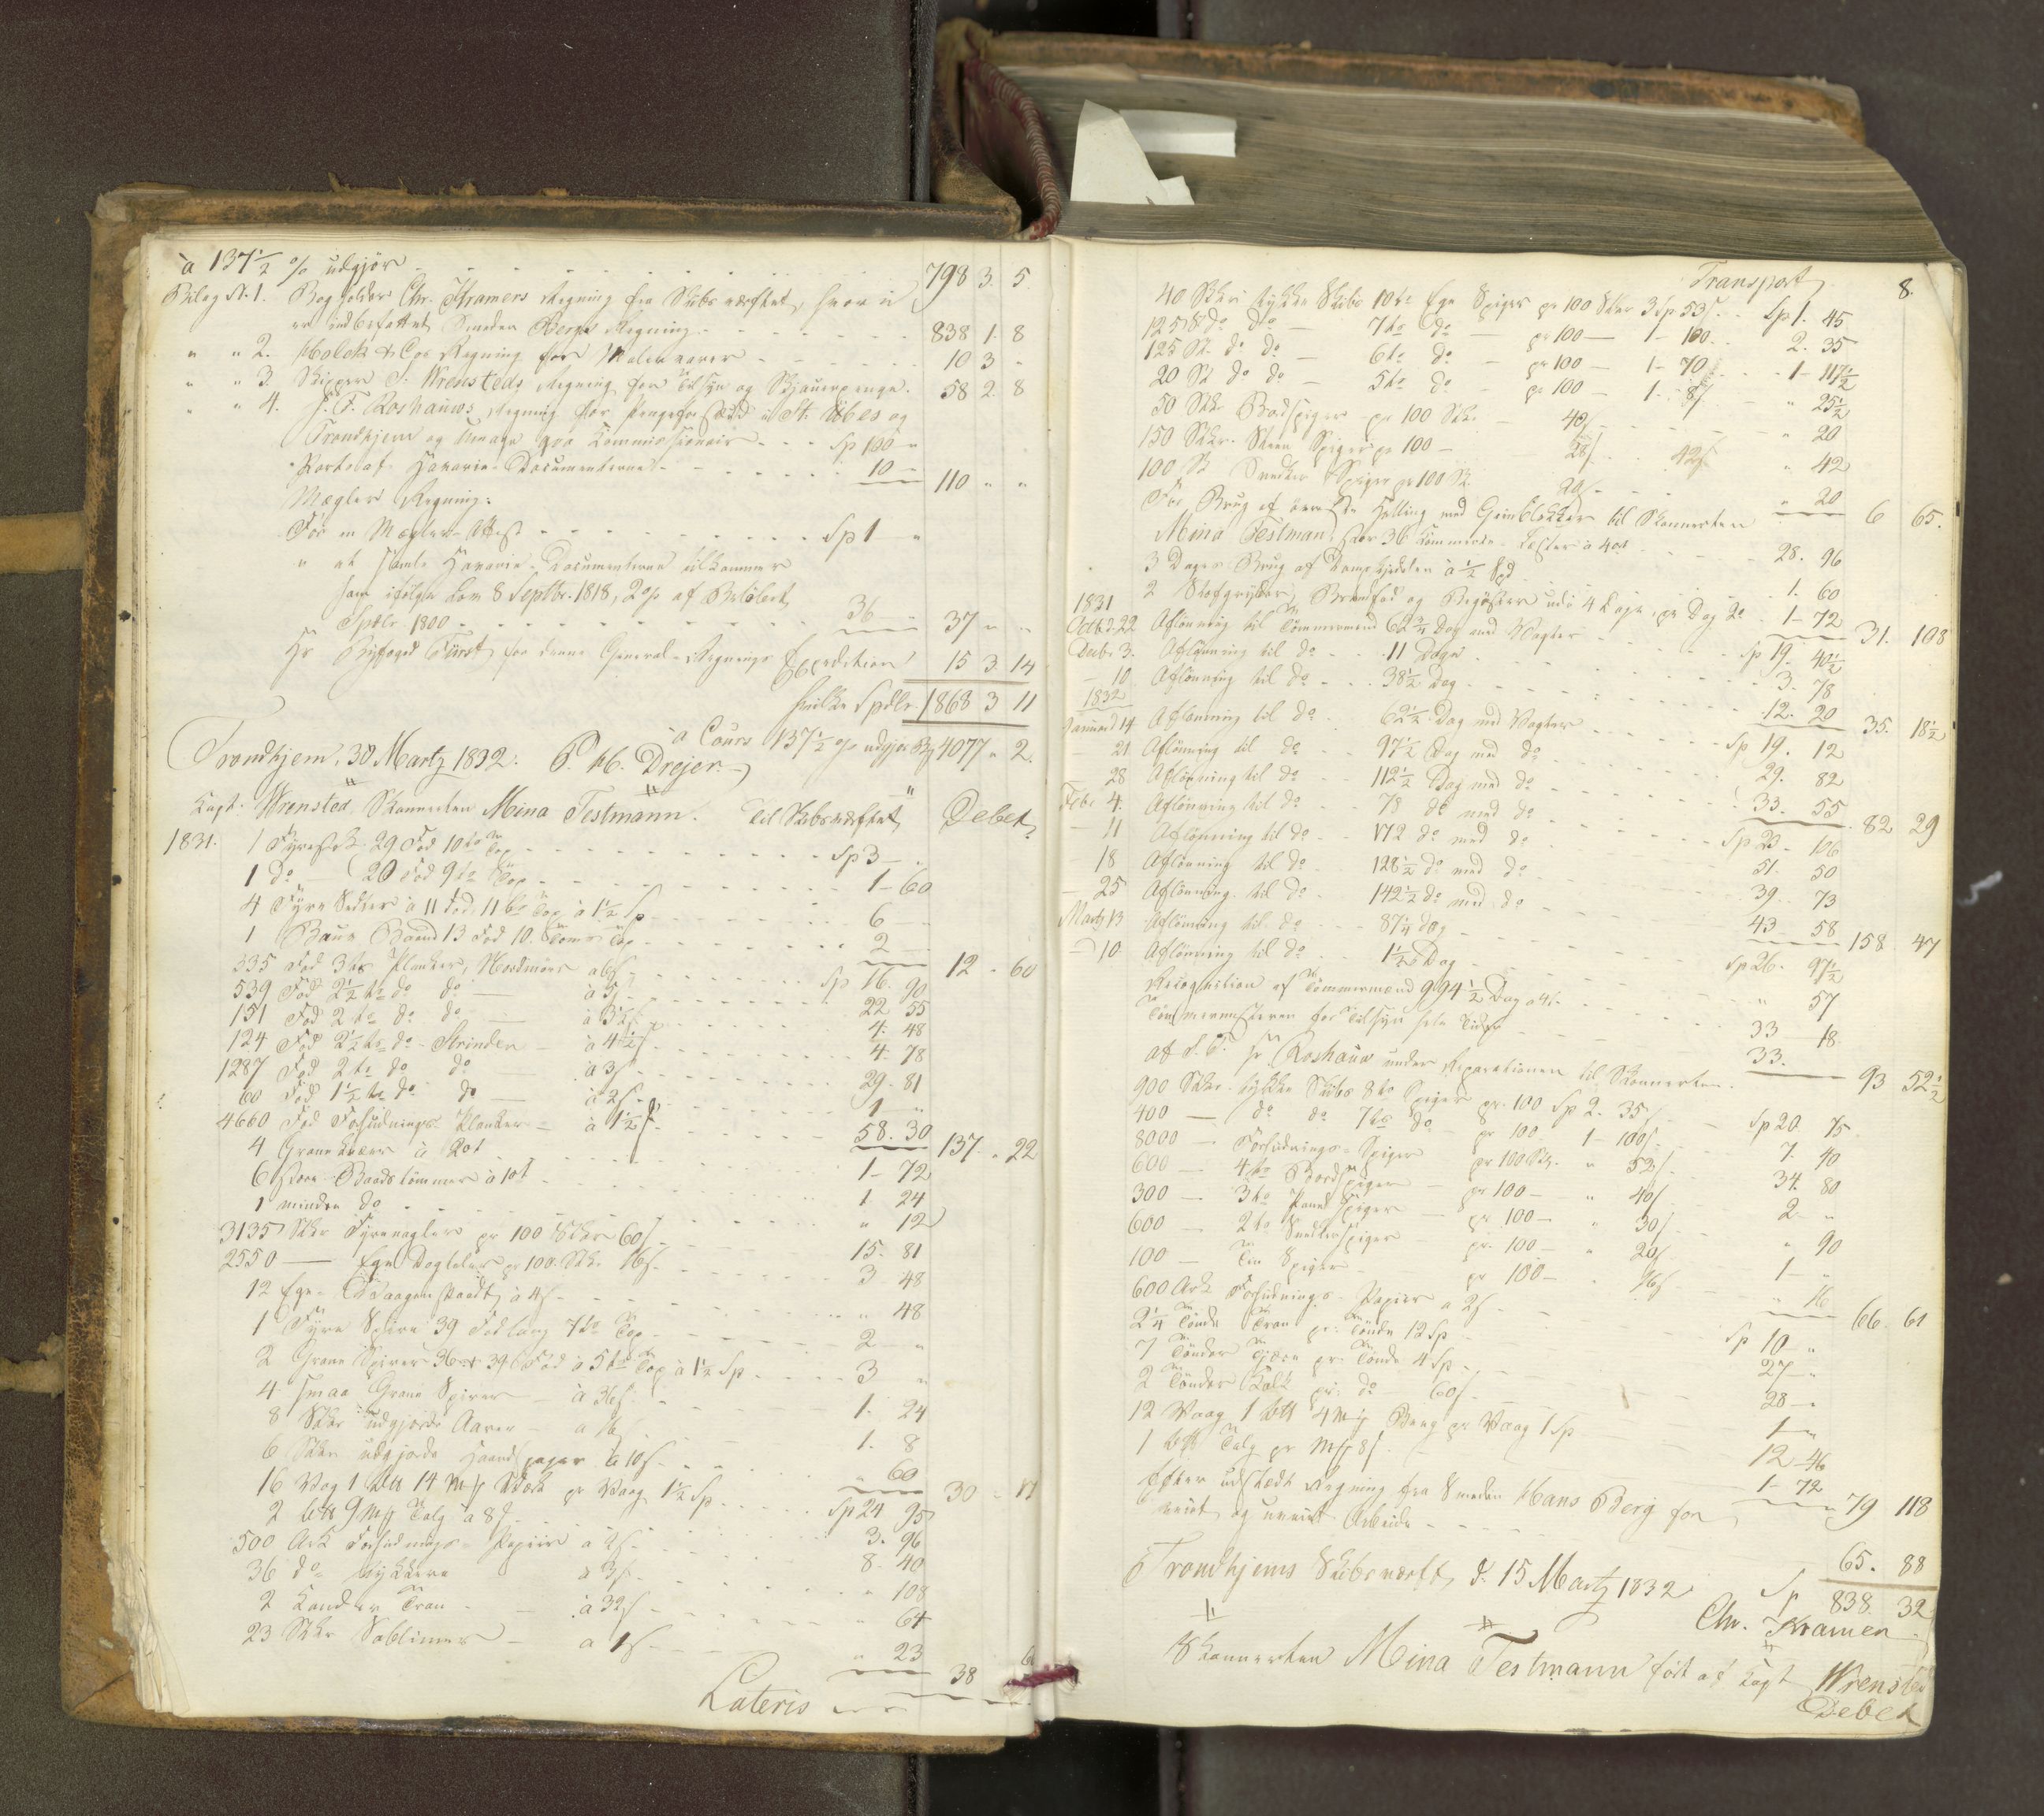 à 137 1/2 % udgjør - - - 798 3. 5.
Bilag N. 1. Bogholder Chr. Kramers Regning fra Skibsværftet, hvor i
er indbefattet Smeden Bergs Regning - - - 838 1. 8
" " 2. Holck & Cos Regning for Malervarer - - - 10 3 "
" " 3. Skipper S. Wrensteds Regning for Tilsyn og Skjauerpenge. 58 2. 8
" " 4. J. F. Roshauws Regning for Pengeforskud i St. Übes og
Trondhjem og Umage qva Commissionair - - - Sp 100 "
Porto af Havarie-Documenterne - - - 10 - 110 " "
Mægler Regning:
For en Mægler-Attest - - - Sp 1 "
" at samle Havarie-Documenterne tilkommer
ham ifølge Lov 8 Septbr. 1818, 2 % af Beløbet
Spdlr. 1800 - - - 36 " 37 " "
Hr Byfoged Fürst for denne General-Regnings Expedition 15 3. 14
hvilke Spdlr. 1868 3 11
à Cours 137 1/2 % udgjør 4077 " 2.
Trondhjem, 30 Martz 1832. P. Drejer.
Capt. Wrensted, Skonnerten Mina Testmann. Til Skibsværftet Debet
1831. 1 29 Fod 10 to Top - - - Sp 3 - "
1 do - 20 Fod 9 to Top - - - 1 - 60
4 Fyre à 11 Fod, 11 to Top à 1 1/2 Sp - - - 6
1 13 Fod 10. Toms Top - - - 2 - 12 - 60
335 Fod 3 to Planker, Nordmørs a 6 s - - - Sp 16. 90
539 Fod 2 1/2 to do do - à 5 s - - - 22 55
151 Fod 2 to do do - - - 4. 48
124 Fod 2 1/2 to do - Strinder - à 4 1/2 s - - - 4. 78
1287 Fod 2 to do do - à 3 s - - - 29. 81
60 Fod 1 1/2 to do do - à 2 s - - - 1 - "
4660 Fod Forhudnings Planker - à 1 1/2 s - - - 58. 30 137. 22
4 Grane Knær à - - - 1 - 72
6 Baads Tømmer à - - - 1 24
1 mindre do - - - " 12
3135 Stkr Fyrenagler pr 100 Stkr 60 s - - - 15. 81
2550 - Ege pr 100. Stkr 16 s - - - 3 48
12 Ege - à 4 s - - - " 48
1 Fyre Spire 39 Fod lang 7 to Top - - - 2 - "
2 Grane Spirer 36 & 39 Fod à 5 to Top à 1 1/2 Sp - - - 3 "
4 smaa Grane Spirer - à 36 s - - - 1. 24
8 Stkr udgjorde Aarer - à 16 - - - 1. 8
6 Stkr udgjorde Haandspager à 10 s - - - " 60 30 - 17
16 Vog 1 14 Værk pr Vaag 1 1/2 Sp - - - Sp 24 95
2 9 Talg à 8 s - - - 3. 96
500 Ark Forhudnings-Papiir à 2 s - - - 8. 40
36 do tykkere à 3 s - - - " 108
2 Kander Tran - à 32 s - - - " 64
23 Stkr - à 1 s - - - " 23 38
Lateris
Transport 8.
40 Stkr tykke Skibs 10 to Ege Spiger pr 100 Stkr 3 Sp 53 s. Sp 1. 45
125 St do do - 7 to do - pr 100 - 1 - 100. 2. 35
125 St. do do - 6 to do - pr 100 - 1 - 70 - 1 - 117 1/2
20 St do do - 5 to do - pr 100 - 1. 8 s " 25 1/2
50 Stkr Bordspiger pr 100 Stkr - 40 s " 20
150 Stkr. Spiger pr 100 - 28 s 42 s " 42
100 St Snedker Spiger pr 100 St. 20 s - " 20 6 65.
For Brug af øverste Helling med Giinblokker til Skonnerten
Mina Testman, stor 36 Commerce Læster à 40 s - - - 28. 96
3 Dages Brug af Dampkjedelen à 1/2 Spd - - - 1. 60
2 Begøster udi 4 Dage, pr Dag - 1 - 72 31. 108
1831
Octb 22 Aflønning til Tømmermænd 62 3/4 Dag med Vagter - - - Sp 19. 40 1/2
Decbr 3. Aflønning til do - - - 11 Dage - - - 3. 78
- 10 Aflønning til do - - - 38 1/2 Dag - - - 12. 20 35. 18 1/2
1832
Januari 14 Aflønning til do - 62 1/2 Dag med Vagter - - - Sp 19. 12
- 21 Aflønning til do - 97 1/2 Dag med do - - - 29. 82
- 28 Aflønning til do - - 112 1/2 Dag med do - - - 33. 55 82 29
Febr 4. Aflønning til do - - 78 do med do - - - Sp 23. 106
- 11 Aflønning til do - - 172 do med do - - - 51. 50
18 Aflønning til do - 128 1/2 do med do - - - 39. 73
- 25 Aflønning til do - 142 1/2 do med do - - - 43 - 58 158 47
Martz 3 Aflønning til do - - - 87 1/4 dag - - - Sp 26. 97 1/2
- 10 Aflønning til do - - - 1 1/2 Dag - - - " 57
Recognition af Tømmermænd 994 1/2 Dag a 4 s - - - 33 18.
Tømmermesteren for Tilsyn hele Tiden - - - 33. 93 52 1/2
af S. T. Hr Roshauw under Reparationen til Skonnerten.
900 Stkr tykke Skibs 8 to Spiger pr. 100 Sp 2. 35 s - Sp 20. 75
400 - do do 7 to do - pr 100 1 - 100 s - 7. 40
8000 - Forhudnings-Spiger pr 100 Stkr. " 52 s - 34. 80
600 - 4 to Bordspiger - pr 100 - " 40 s - 2. "
300 - 3 to Spiger - pr 100 - " 30 s - " 90
600 - 2 to Snedkerspiger - pr. 100 - " 20 s - 1 - "
100 - Spiger - pr 100 - " 16 s " 16 66. 61
600 Ark Forhudnings-Papiir a 2 s - - - Sp 10 "
2 1/4 Tønde Tran pr. Tønde 12 Sp - - - 27 - "
7 Tønder Tjære pr. Tønde 4 Sp - - - 28 -
2 Tønder Kalk pr. do - 60 s - - - 1 - "
12 Vaag 1 4 Beeg pr Vaag 1 Sp 12 - 46
1 Talg pr 8 s - - - 1 - 72 79 118
Efter udstedt Regning fra Smeden Hans Berg for
Arbeide - - - 65. 88
Trondhjems Skibsværft d. 15 Martz 1832 Sp 838. 32
Chr. Kramer
Skonnerten Mina Testmann ført af Capt Wrensted
Debet